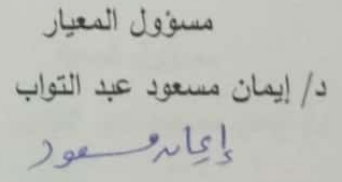 مسؤول المعيار
د/ إيمان مسعود عبد التواب
إيمان مسعود